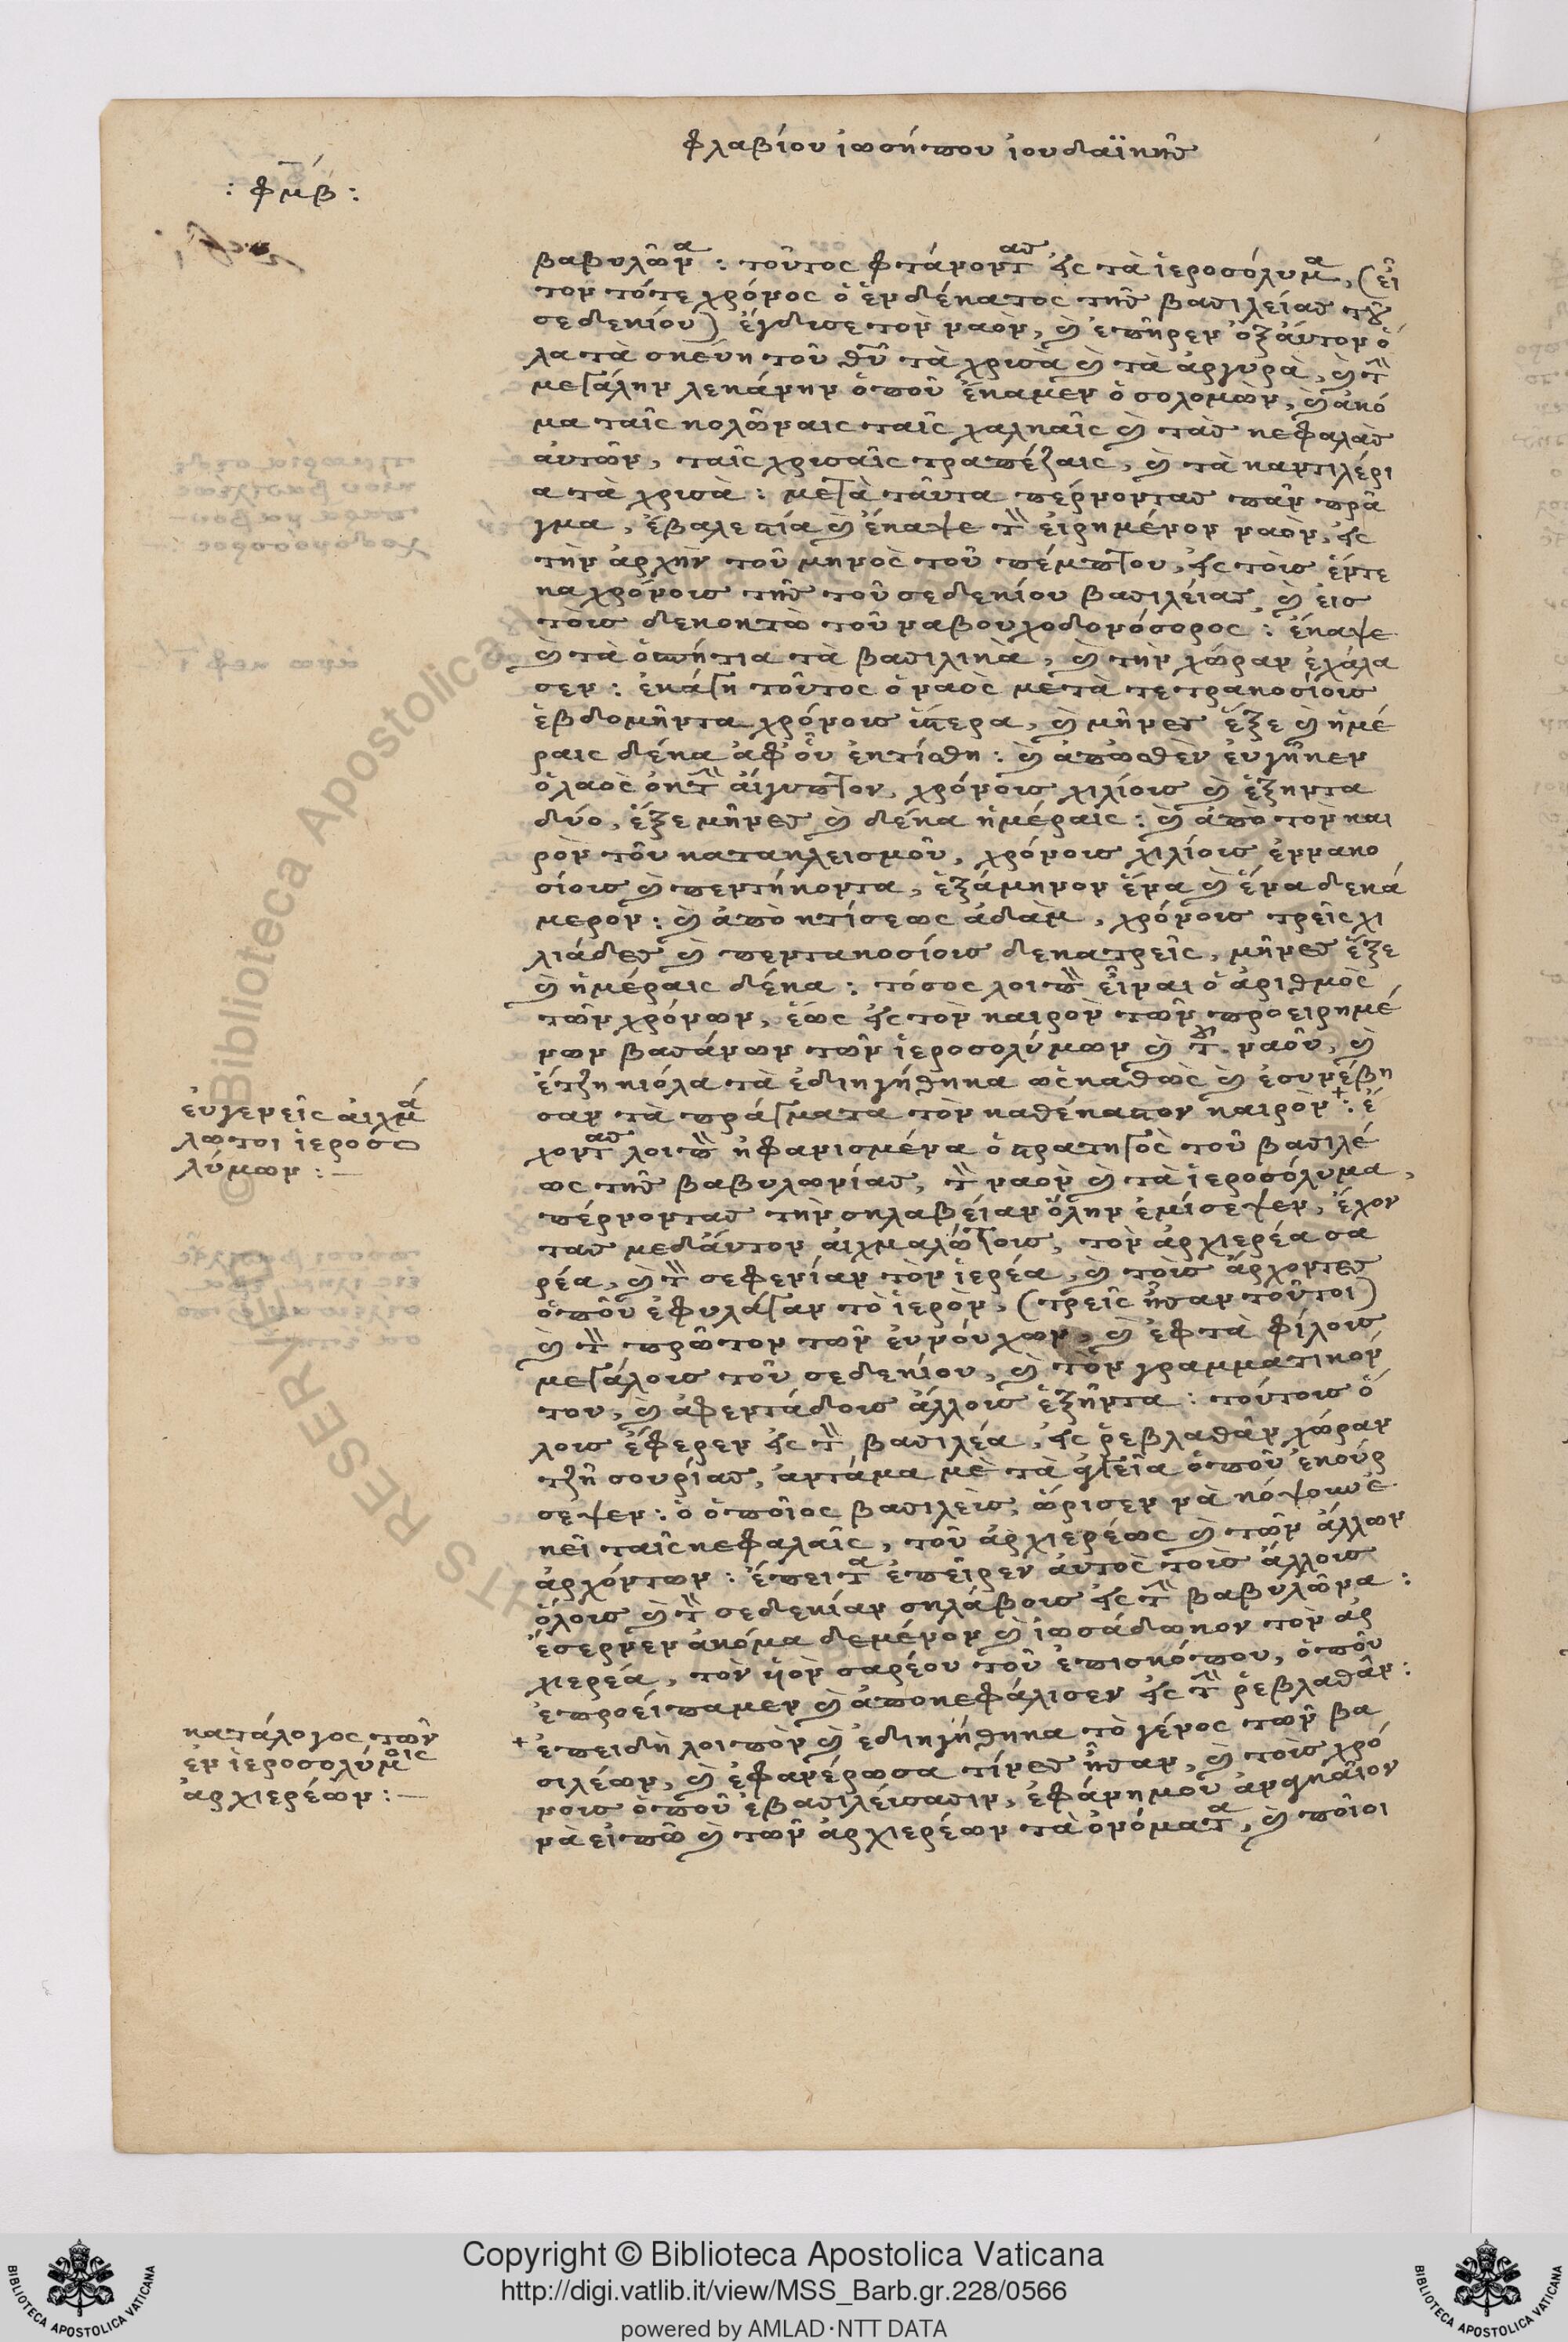 φλαβίου ἰωσήπου ἰουδαϊκῆς
: φμβ :
βαβυλῶνα : τοῦτος φτάνοντας εἰς τὰ ἱεροσόλυμα, (εἶ
τον τότε χρόνος ὁ ἑνδέκατος τῆς βασιλείας τοῦ
σεδεκίου) ἔγδισε τὸν ναὸν, καὶ ἐπῆρεν ὀξαύτον ὅ
λα τὰ σκέυη τοῦ θυ τὰ χρισὰ καὶ τὰ ἀργυρὰ, καὶ τὴν
μεγάλην λεκάνην ὁποῦ ἔκαμεν ὁ σολομὼν, καὶ ἀκό
μα ταῖς κολῶναις ταῖς χαλκαῖς καὶ τὰς κεφαλὰς
ἀυτῶν, ταῖς χρισαῖς τραπέζαις, καὶ τὰ καντιλέρι
α τὰ χρισὰ : μετὰ ταῦτα πέρνοντας πᾶν πρᾶ
γμα, ἔβαλε στία καὶ ἔκαψε τὸν εἰρημένον ναὸν, εἰς
τὴν ἀρχὴν τοῦ μηνὸς τοῦ πέμπτου, εἰς τὸις ἕντε
κα χρόνοις τῆς τοῦ σεδεκίου βασιλείας, καὶ εἰσ
τὸις δεκοκτὼ τοῦ ναβουχοδονόσορος : ἔκαψε
καὶ τὰ ὁσπήτια τὰ βασιλικὰ, καὶ τὴν χώραν ἐχάλα
σεν : ἐκάγη τοῦτος ὁ ναὸς μετὰ τετρακοσίοις
ἑβδομῆντα χρόνοις ὕστερα, καὶ μῆνες ἕξε καὶ ἡμέ
ραις δέκα ἀφ' οὗ ἐκτίσθη : καὶ ἀποσθὲν ἐυγῆκεν
ὁ λαὸς ὀκ τὴν ἀίγυπτον, χρόνοις χιλίοις καὶ ἑξηντα
δύο, ἕξε μῆνες καὶ δέκα ἡμέραις : καὶ ἀπὸ τὸν και
ρὸν τοῦ κατακλεισμοῦ, χρόνοις χιλίοις ἐννακο
σίοις καὶ πεντήκοντα, ἑξάμηνον ἕνα καὶ ἕνα δεκά
μερον : καὶ ἀπὸ κτίσεως ἀδὰμ, χρόνοις τρεῖς χι
λιάδες καὶ πεντακοσίοις δεκατρεῖς, μῆνες ἕξε
καὶ ἡμέραις δέκα : τόσος λοιπὸν εἶναι ὁ ἀριθμὸς
τῶν χρόνων, ἕως εἰς τὸν καιρὸν τῶν προειρημέ
νων βασάνων τῶν ἱεροσολύμων καὶ τοῦ ναοῦ, καὶ
ἔτζη κιόλα τὰ ἐδιηγήθηκα ὡς καθὼς καὶ ἐσυνέβη
σαν τὰ πράγματα τὸν καθέκαστον καιρὸν+ : ἔ
χοντας λοιπὸν ἠφανισμένα ὁ στρατηγὸς τοῦ βασιλέ
ως τῆς βαβυλωνίας, τὸν ναὸν καὶ τὰ ἱεροσόλυμα,
πέρνοντας τὴν σκλαβείαν ὅλην ἐμίσεψεν, ἔχον
τας μεδάυτον ἀιχμαλώτοις, τὸν ἀρχιερέα σα
ρέα, καὶ τὸν σεφενίαν τὸν ἱερέα, καὶ τὸις ἄρχοντες
ὁποῦ ἐφυλάγαν τὸ ἱερὸν, (τρεῖς ἦσαν τοῦτοι)
καὶ τὸν πρῶτον τῶν ἐυνούχων, καὶ ἐφτὰ φίλοις
μεγάλοις τοῦ σεδεκίου, καὶ τὸν γραμματικόν
του, καὶ ἀφεντάδοις ἄλλοις ἑξῆντα : τούτοις ὅ
λοις ἔφερεν εἰς τὸν βασιλέα, εἰς ῥεβλαθᾶν χώραν
τζῆ σουρίας, ἀντάμα μὲ τὰ σκεῖα ὁποῦ ἐκούρ
σεψεν : ὁ ὁποῖος βασιλεὶς, ὥρισεν νὰ κόψοισι ἐ
κεῖ ταῖς κεφαλαῖς, τοῦ ἀρχιερέως καὶ τῶν ἄλλων
ἀρχόντων : ἔπειτα ἐπεῖρεν ἀυτὸς τοὶς ἄλλοις
ὅλοις καὶ τὸν σεδεκίαν σκλάβοις εἰς τὴν βαβυλῶνα :
ἔσερνεν ἀκόμα δεμένον καὶ ἰωσάδωκον τὸν ἀρ
χιερέα, τὸν ὑὸν σαρέου τοῦ ἐπισκόπου, ὁποῦ
ἐπροείπαμεν καὶ ἀποκεφάλισεν εἰς τὴν ῥεβλαθᾶν :
+ ἐπειδὴ λοιπὸν καὶ ἐδιηγήθηκα τὸ γένος τῶν βα
σιλέων, καὶ ἐφανέρωσα τίνες ἦσαν, καὶ τοὶς χρό
νοις ὁποῦ ἐβασιλείσασιν, ἐφάνη μου ἀναγκαῖον
νὰ εἰπῶ καὶ τῶν ἀρχιερέων τὰ ὀνόματα, καὶ ποῖοι
ἐυγενεῖς ἀιχμά
λωτοι ἱεροσο
λύμων : —
κατάλογος τῶν
ἐν ἱεροσολύμοις
ἀρχιερέων : —
© Biblioteca Apostolica
Copyright © Biblioteca Apostolica Vaticana
http://digi.vatlib.it/view/MSS_Barb.gr.228/0566
powered by AMLAD·NTT DATA
BIBLIOTECA APOSTOLICA VATICANA
BIBLIOTECA APOSTOLICA VATICANA